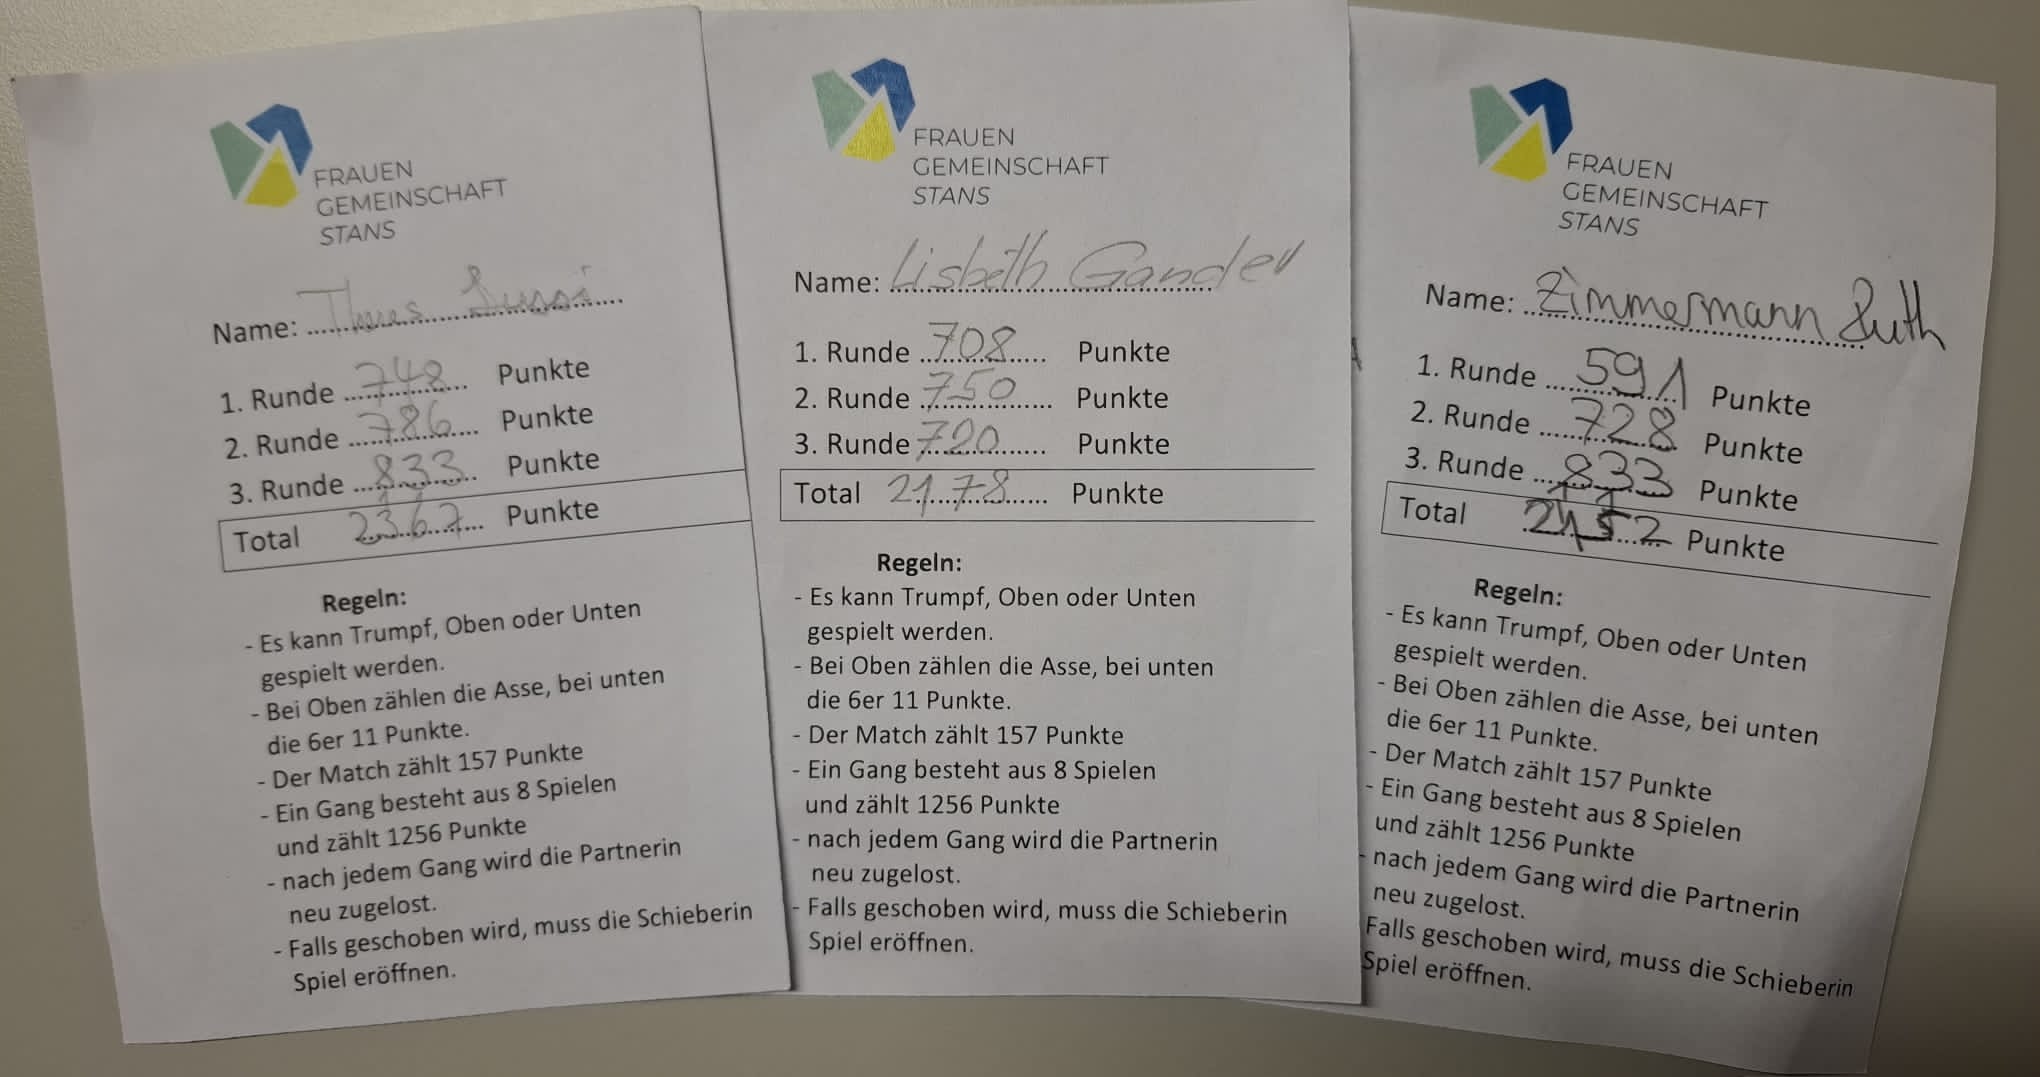 FRAUEN
GEMEINSCHAFT
STANS
Name:
1. Runde 748 Punkte
2. Runde 786 Punkte
3. Runde 833 Punkte
Total 2367 Punkte
Regeln:
- Es kann Trumpf, Oben oder Unten
gespielt werden.
- Bei Oben zählen die Asse, bei unten
die 6er 11 Punkte.
- Der Match zählt 157 Punkte
- Ein Gang besteht aus 8 Spielen
und zählt 1256 Punkte
- nach jedem Gang wird die Partnerin
neu zugelost.
- Falls geschoben wird, muss die Schieberin
Spiel eröffnen.
FRAUEN
GEMEINSCHAFT
STANS
Name: Lisbeth Gander
1. Runde 708 Punkte
2. Runde 750 Punkte
3. Runde 720 Punkte
Total 2178 Punkte
Regeln:
- Es kann Trumpf, Oben oder Unten
gespielt werden.
- Bei Oben zählen die Asse, bei unten
die 6er 11 Punkte.
- Der Match zählt 157 Punkte
- Ein Gang besteht aus 8 Spielen
und zählt 1256 Punkte
- nach jedem Gang wird die Partnerin
neu zugelost.
- Falls geschoben wird, muss die Schieberin
Spiel eröffnen.
FRAUEN
GEMEINSCHAFT
STANS
Name: Zimmermann Ruth
1. Runde 591 Punkte
2. Runde 728 Punkte
3. Runde 833 Punkte
Total 2152 Punkte
Regeln:
- Es kann Trumpf, Oben oder Unten
gespielt werden.
- Bei Oben zählen die Asse, bei unten
die 6er 11 Punkte.
- Der Match zählt 157 Punkte
- Ein Gang besteht aus 8 Spielen
und zählt 1256 Punkte
- nach jedem Gang wird die Partnerin
neu zugelost.
Falls geschoben wird, muss die Schieberin
Spiel eröffnen.